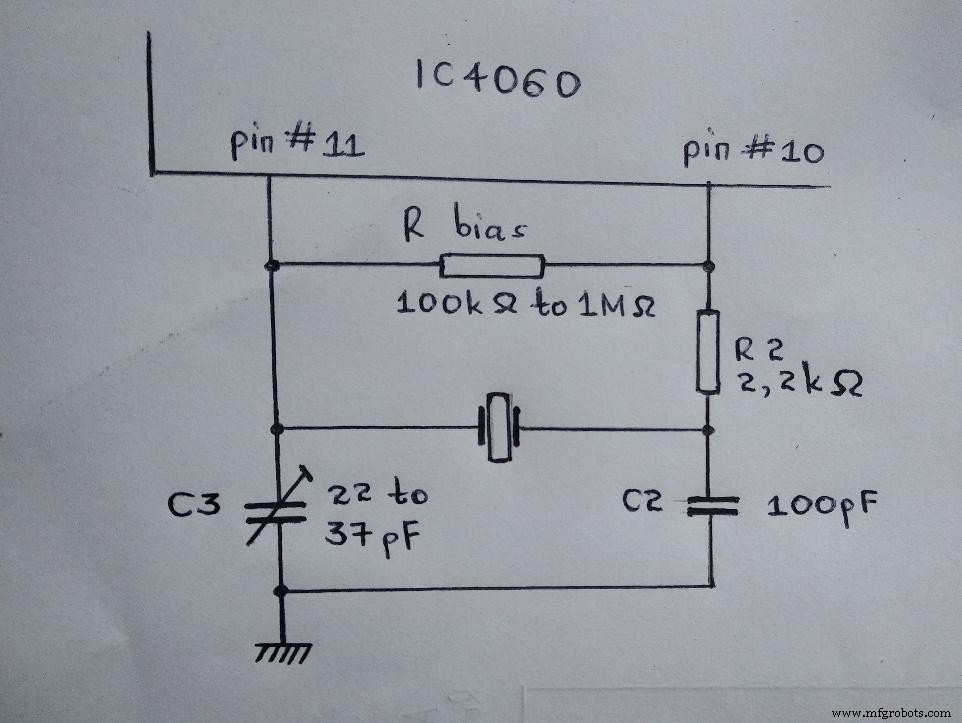 IC4060
pin #11
pin #10
R bias
100kΩ to 1MΩ
R2
2,2kΩ
C3
22 to
37pF
C2
100pF
www.mfgrobots.com